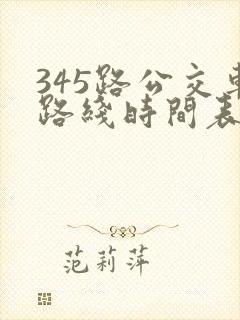 345路公交車
路綫時間表
范莉萍